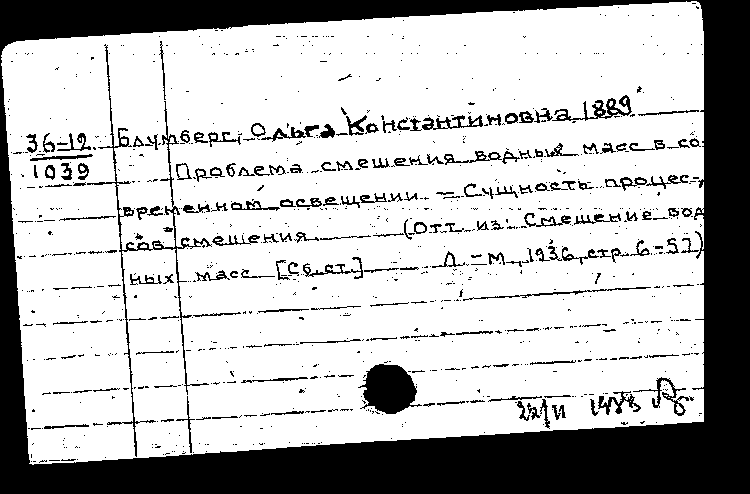 36-12
1039
Блумберг, Ольга Константиновна, 1889
Проблема смешения водных масс в со-
временном освещении = Сущность процес-
сов смешения. (Отт. из: Смешение вод
ных масс [Сб. ст.] Л.-М., 1936, стр. 6-57)
22/II